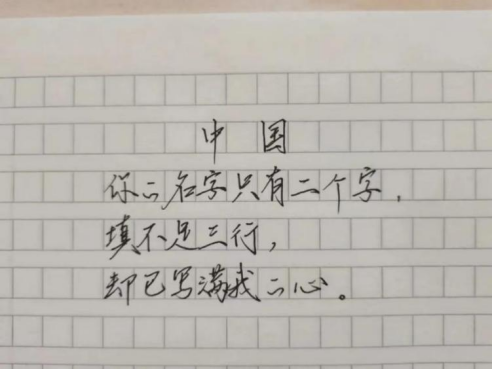 中国
你的名字只有二个字，
填不足三行，
却已写满我的心。